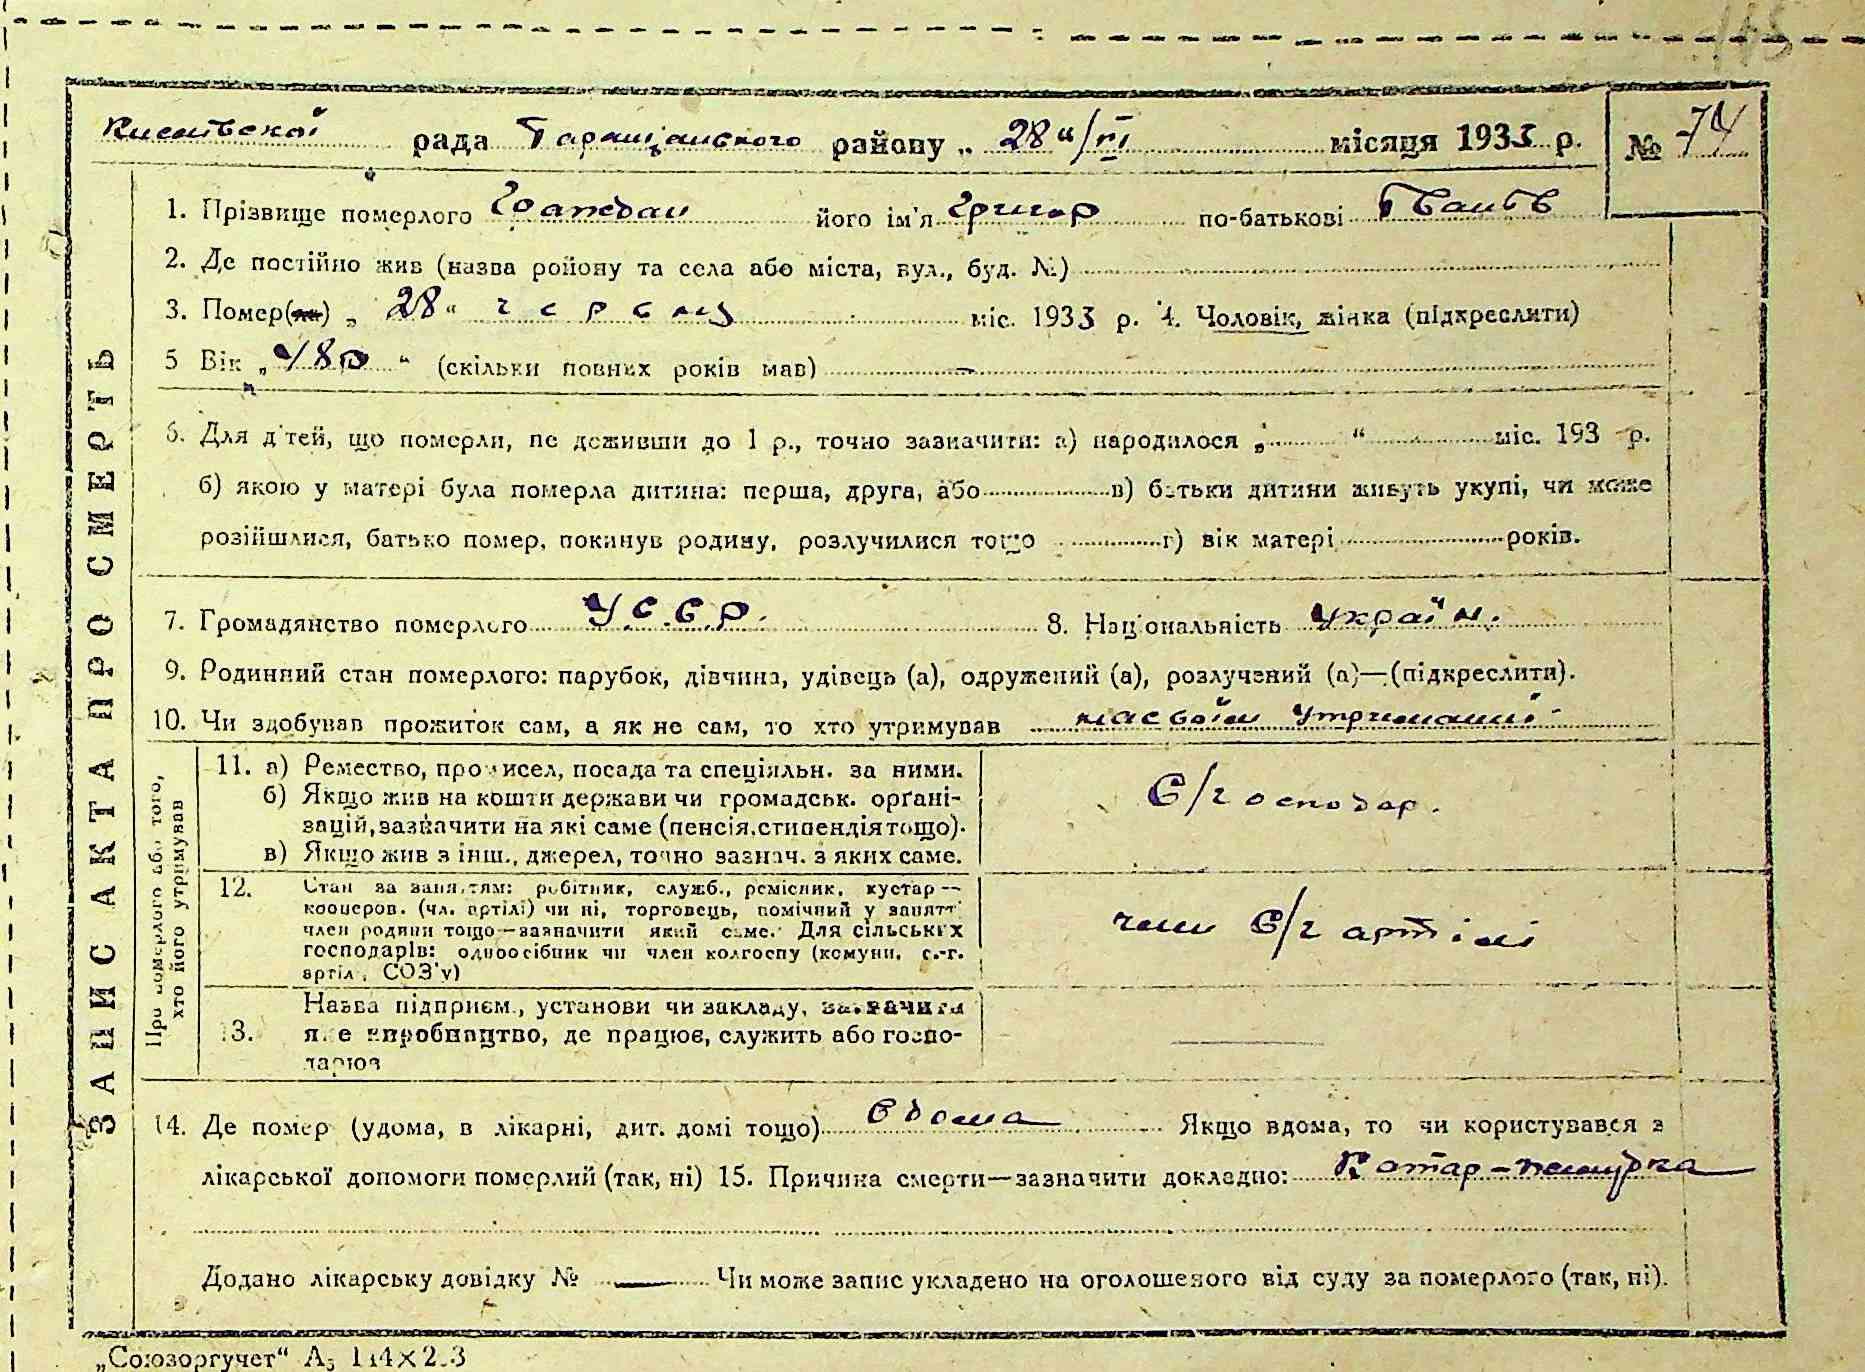 рада Таращанського району „ 28 "/VI місяця 1933 р. № 74
1. Прізвище померлого його ім'я Григор по-батькові
2. Де постійно жив (назва району та села або міста, вул., буд. №)
3. Помер(ла) „ 28 " червня міс. 1933 р. 4. Чоловік, жінка (підкреслити)
5 Вік „ 48 р " (скільки повних років мав) —
6. Для дітей, що померли, не доживши до 1 р., точно зазначити: а) народилося „ " міс. 193 р.
б) якою у матері була померла дитина: перша, друга, або в) батьки дитини живуть укупі, чи може
розійшлися, батько помер, покинув родину, розлучилися тощо г) вік матері років.
7. Громадянство померлого У.С.С.Р. 8. Національність Україн.
9. Родинний стан померлого: парубок, дівчина, удівець (а), одружений (а), розлучений (а)—(підкреслити).
10. Чи здобував прожиток сам, а як не сам, то хто утримував на своїм утриманні
ЗАПИС АКТА ПРО СМЕРТЬ
Про померлого або того,
хто його утримував
11. а) Ремество, промисел, посада та спеціяльн. за ними.
б) Якщо жив на кошти держави чи громадськ. органі-
зацій, зазначити на які саме (пенсія, стипендія тощо).
в) Якщо жив з інш., джерел, точно зазнач. з яких саме.
С/господар.
12. Стан за заняттям: робітник, служб., ремісник, кустар —
кооперов. (чл. артілі) чи ні, торговець, помічний у занятті
член родини тощо—зазначити який саме. Для сільських
господарів: одноосібник чи член колгоспу (комуни, с.-г.
артіл., СОЗ'у)
член С/г артілі
13. Назва підприєм., установи чи закладу, зазначити
яке виробництво, де працює, служить або госпо-
дарює
14. Де помер (удома, в лікарні, дит. домі тощо) вдома Якщо вдома, то чи користувався з
лікарської допомоги померлий (так, ні) 15. Причина смерти—зазначити докладно: Катар-
Додано лікарську довідку № — Чи може запис укладено на оголошеного від суду за померлого (так, ні).
„Союзоргучет"